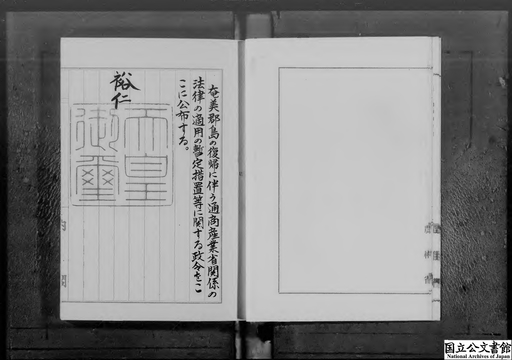 奄美群島の復帰に伴う通商産業省関係の
法律の適用の暫定措置等に関する政令をこ
こに公布する。
裕仁
天皇
御璽
国立公文書館
National Archives of Japan